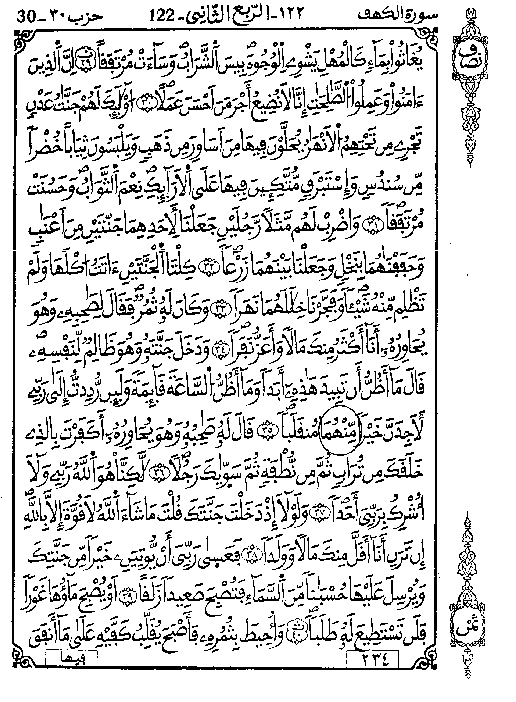 سورة الكهف ١٢٢-الربع الثاني-122 حزب ٣٠-30
نصف
يُغَاثُواْ بِمَآءٍ كَالْمُهْلِ يَشْوِے اِلْوُجُوهَۖ بِيسَ اَلشَّرَابُ وَسَآءَتْ مُرْتَفَقاًۖ ٢٩ اِنَّ اَلذِينَ
ءَامَنُواْ وَعَمِلُواْ اُلصَّٰلِحَٰتِ إِنَّا لَا نُضِيعُ أَجْرَ مَنَ اَحْسَنَ عَمَلاًۖ ٣٠ اُوْلَٰٓئِكَ لَهُمْ جَنَّٰتُ عَدْنٖ
تَجْرِے مِن تَحْتِهِمُ اُلَانْهَٰرُ يُحَلَّوْنَ فِيهَا مِنَ اَسَاوِرَ مِن ذَهَبٖ وَيَلْبَسُونَ ثِيَاباً خُضْراً
مِّن سُندُسٖ وَإِسْتَبْرَقٖ مُّتَّكِـِٕينَ فِيهَا عَلَي اَلَارَآئِكِۖ نِعْمَ اَلثَّوَابُ وَحَسُنَتْ
مُرْتَفَقاًۖ ٣١ وَاضْرِبْ لَهُم مَّثَلاً رَّجُلَيْنِ جَعَلْنَا لِأَحَدِهِمَا جَنَّتَيْنِ مِنَ اَعْنَٰبٖ
وَحَفَفْنَٰهُمَا بِنَخْلٖ وَجَعَلْنَا بَيْنَهُمَا زَرْعاًۖ ٣٢ كِلْتَا اَلْجَنَّتَيْنِ ءَاتَتُ ا۟كْلَهَا وَلَمْ
تَظْلِم مِّنْهُ شَيْـٔاًۖ وَفَجَّرْنَا خِلَٰلَهُمَا نَهَراًۖ ٣٣ وَكَانَ لَهُۥ ثُمُرٞۖ فَقَالَ لِصَٰحِبِهِۦ وَهُوَ
يُحَاوِرُهُۥٓ أَنَآ أَكْثَرُ مِنكَ مَالاً وَأَعَزُّ نَفَراًۖ ٣٤ وَدَخَلَ جَنَّتَهُۥ وَهُوَ ظَالِمٞ لِّنَفْسِهِۦۖ
قَالَ مَآ أَظُنُّ أَن تَبِيدَ هَٰذِهِۦٓ أَبَداً وَمَآ أَظُنُّ اُلسَّاعَةَ قَآئِمَةًۖ وَلَئِن رُّدِدتُّ إِلَيٰ رَبِّے
لَأَجِدَنَّ خَيْراً مِّنْهُمَا مُنقَلَباًۖ ٣٥ قَالَ لَهُۥ صَٰحِبُهُۥ وَهُوَ يُحَاوِرُهُۥٓ أَكَفَرْتَ بِالذِے
خَلَقَكَ مِن تُرَابٖ ثُمَّ مِن نُّطْفَةٖ ثُمَّ سَوّ۪يٰكَ رَجُلاًۖ ٣٦ لَّٰكِنَّا هُوَ اَللَّهُ رَبِّے وَلَآ
أُشْرِكُ بِرَبِّيَ أَحَداًۖ ٣٧ وَلَوْلَآ إِذْ دَخَلْتَ جَنَّتَكَ قُلْتَ مَا شَآءَ اَللَّهُ لَا قُوَّةَ إِلَّا بِاللَّهِۖ
إِن تَرَنِۦٓ أَنَآ أَقَلَّ مِنكَ مَالاً وَوَلَداًۖ ٣٨ فَعَس۪يٰ رَبِّيَ أَنْ يُّوتِيَنِۦ خَيْراً مِّن جَنَّتِكَ
وَيُرْسِلَ عَلَيْهَا حُسْبَاناً مِّنَ اَلسَّمَآءِ فَتُصْبِحَ صَعِيداً زَلَقاًۖ ٣٩ اَوْ يُصْبِحَ مَآؤُهَا غَوْراً
فَلَن تَسْتَطِيعَ لَهُۥ طَلَباًۖ ٤٠ وَأُحِيطَ بِثُمُرِهِۦ فَأَصْبَحَ يُقَلِّبُ كَفَّيْهِ عَلَيٰ مَآ أَنفَقَ
ثمن
٢٣٤ فيها